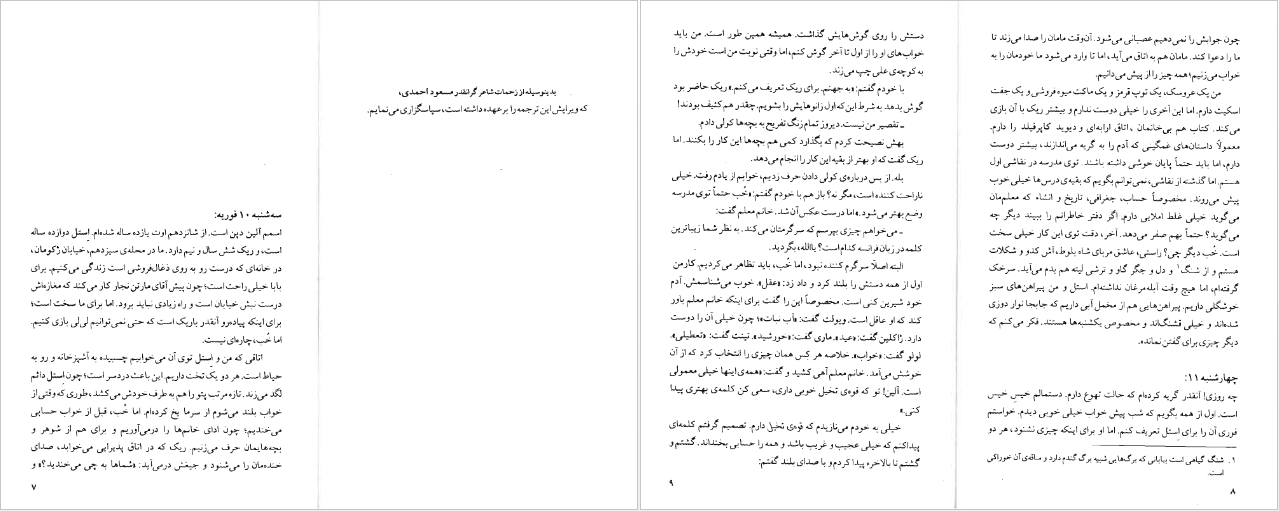 بدینوسیله از زحمات شاعر گرانقدر مسعود احمدی،
که ویرایش این ترجمه را برعهده داشته است، سپاسگزاری می‌نمایم.
سه‌شنبه ۱۰ فوریه:
اسمم آلین دپن است. از شانزدهم اوت یازده ساله شده‌ام. اِستل دوازده ساله
است، و ریک شش سال و نیم دارد. ما در محله‌ی سیزدهم، خیابان ژکومان،
در خانه‌ای که درست رو به روی ذغال‌فروشی است زندگی می‌کنیم. برای
بابا خیلی راحت است؛ چون پیش آقای مارتن نجار کار می‌کند که مغازه‌اش
درست نبش خیابان است و راه زیادی نباید برود. اما برای ما سخت است؛
برای اینکه پیاده‌رو آنقدر باریک است که حتی نمی‌توانیم لی‌لی بازی کنیم.
اما خُب، چاره‌ای نیست.
اتاقی که من و اِستل توی آن می‌خوابیم چسبیده به آشپزخانه و رو به
حیاط است. هر دو یک تخت داریم. این باعث دردسر است؛ چون اِستل دائم
لگد می‌زند. تازه مرتب پتو را هم به طرف خودش می‌کشد، طوری که وقتی از
خواب بلند می‌شوم از سرما یخ کرده‌ام. اما خُب، قبل از خواب حسابی
می‌خندیم؛ چون ادای خانم‌ها را درمی‌آوریم و برای هم از شوهر و
بچه‌هایمان حرف می‌زنیم. ریک که در اتاق پذیرایی می‌خوابد، صدای
خنده‌مان را می‌شنود و جیغش درمی‌آید: «شماها به چی می‌خندید؟» و
۷
چون جوابش را نمی‌دهیم عصبانی می‌شود. آن‌وقت مامان را صدا می‌زند تا
ما را دعوا کند. مامان هم به اتاق می‌آید، اما تا وارد می‌شود ما خودمان را به
خواب می‌زنیم؛ همه چیز را از پیش می‌دانیم.
من یک عروسک، یک توپ قرمز و یک ماکت میوه‌فروشی و یک جفت
اسکیت دارم. اما این آخری را خیلی دوست ندارم و بیشتر ریک با آن بازی
می‌کند. کتاب هم بی‌خانمان، اتاق ارابه‌ای و دیوید کاپرفیلد را دارم.
معمولاً داستان‌های غمگینی که آدم را به گریه می‌اندازند، بیشتر دوست
دارم، اما باید حتماً پایان خوشی داشته باشند. توی مدرسه در نقاشی اول
هستم. اما گذشته از نقاشی، نمی‌توانم بگویم که بقیه‌ی درس‌ها خیلی خوب
پیش می‌روند. مخصوصاً حساب، جغرافی، تاریخ و انشاء که معلم‌مان
می‌گوید خیلی غلط املایی دارم. اگر دفتر خاطراتم را ببیند دیگر چه
می‌گوید؟ حتماً بهم صفر می‌دهد. آخر، دقت توی این کار خیلی سخت
است. خُب دیگر چی؟ راستی، عاشق مربای شاه بلوط، آش کدو و شکلات
هستم و از شنگ۱ و دل و جگر گاو و ترشی لیته هم بدم می‌آید. سرخک
گرفته‌ام، اما هیچ وقت آبله‌مرغان نداشته‌ام. استل و من پیراهن‌های سبز
خوشگلی داریم. پیراهن‌هایی هم از مخمل آبی داریم که جابجا نوار دوزی
شده‌اند و خیلی قشنگ‌اند و مخصوص یکشنبه‌ها هستند. فکر می‌کنم که
دیگر چیزی برای گفتن نمانده.
چهارشنبه ۱۱:
چه روزی! آنقدر گریه کرده‌ام که حالت تهوع دارم. دستمالم خیسِ خیس
است. اول از همه بگویم که شب پیش خواب خیلی خوبی دیدم. خواستم
فوری آن را برای اِستل تعریف کنم. اما او برای اینکه چیزی نشنود، هر دو
۱. شنگ گیاهی است بیابانی که برگ‌هایی شبیه برگ گندم دارد و ساقه‌ی آن خوراکی
است.
۸
دستش را روی گوش‌هایش گذاشت. همیشه همین طور است. من باید
خواب‌های او را از اول تا آخر گوش کنم، اما وقتی نوبت من است خودش را
به کوچه‌ی علی چپ می‌زند.
با خودم گفتم: «به جهنم. برای ریک تعریف می‌کنم.» ریک حاضر بود
گوش بدهد به شرط این‌که اول زانوهایش را بشویم. چقدر هم کثیف بودند!
ـ تقصیر من نیست. دیروز تمام زنگ تفریح به بچه‌ها کولی دادم.
بهش نصیحت کردم که بگذارد کمی هم بچه‌ها این کار را بکنند. اما
ریک گفت که او بهتر از بقیه این کار را انجام می‌دهد.
بله. از بس درباره‌ی کولی دادن حرف زدیم، خوابم از یادم رفت. خیلی
ناراحت کننده است، مگر نه؟ باز هم با خودم گفتم: «خُب حتماً توی مدرسه
وضع بهتر می‌شود.» اما درست عکس آن شد. خانم معلم گفت:
ـ می‌خواهم چیزی بپرسم که سرگرمتان می‌کند. به نظر شما زیباترین
کلمه در زبان فرانسه کدام است؟ یاالله، بگردید.
البته اصلاً سرگرم کننده نبود، اما خُب، باید تظاهر می‌کردیم. کارمن
اول از همه دستش را بلند کرد و داد زد: «عقل». خوب می‌شناسمش. آدم
خود شیرین کنی است. مخصوصاً این را گفت برای اینکه خانم معلم باور
کند که او عاقل است. ویولت گفت: «آب نبات»؛ چون خیلی آن را دوست
دارد. ژاکلین گفت: «عید». ماری گفت: «خورشید». تینت گفت: «تعطیلی».
لولو گفت: «خواب». خلاصه هر کس همان چیزی را انتخاب کرد که از آن
خوشش می‌آمد. خانم معلم آهی کشید و گفت: «همه‌ی اینها خیلی معمولی
است. آلین! تو که قوه‌ی تخیل خوبی داری، سعی کن کلمه‌ی بهتری پیدا
کنی.»
خیلی به خودم می‌نازیدم که قوه‌ی تخیل دارم. تصمیم گرفتم کلمه‌ای
پیداکنم که خیلی عجیب و غریب باشد و همه را حسابی بخنداند. گشتم و
گشتم تا بالاخره پیدا کردم و با صدای بلند گفتم:
۹